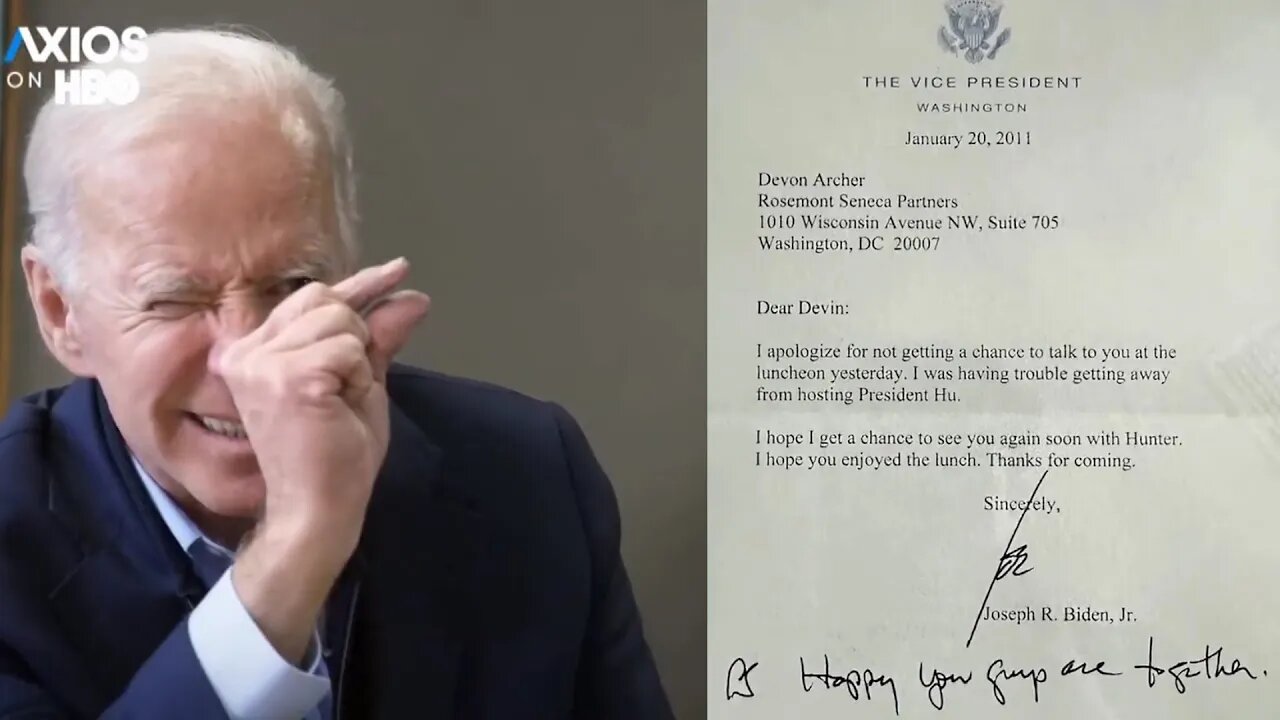 AXIOS
ON HBO
THE VICE PRESIDENT
WASHINGTON
January 20, 2011
Devon Archer
Rosemont Seneca Partners
1010 Wisconsin Avenue NW, Suite 705
Washington, DC 20007
Dear Devin:
I apologize for not getting a chance to talk to you at the
luncheon yesterday. I was having trouble getting away
from hosting President Hu.
I hope I get a chance to see you again soon with Hunter.
I hope you enjoyed the lunch. Thanks for coming.
Sincerely,
Joseph R. Biden, Jr.
PS Happy you guys are together.